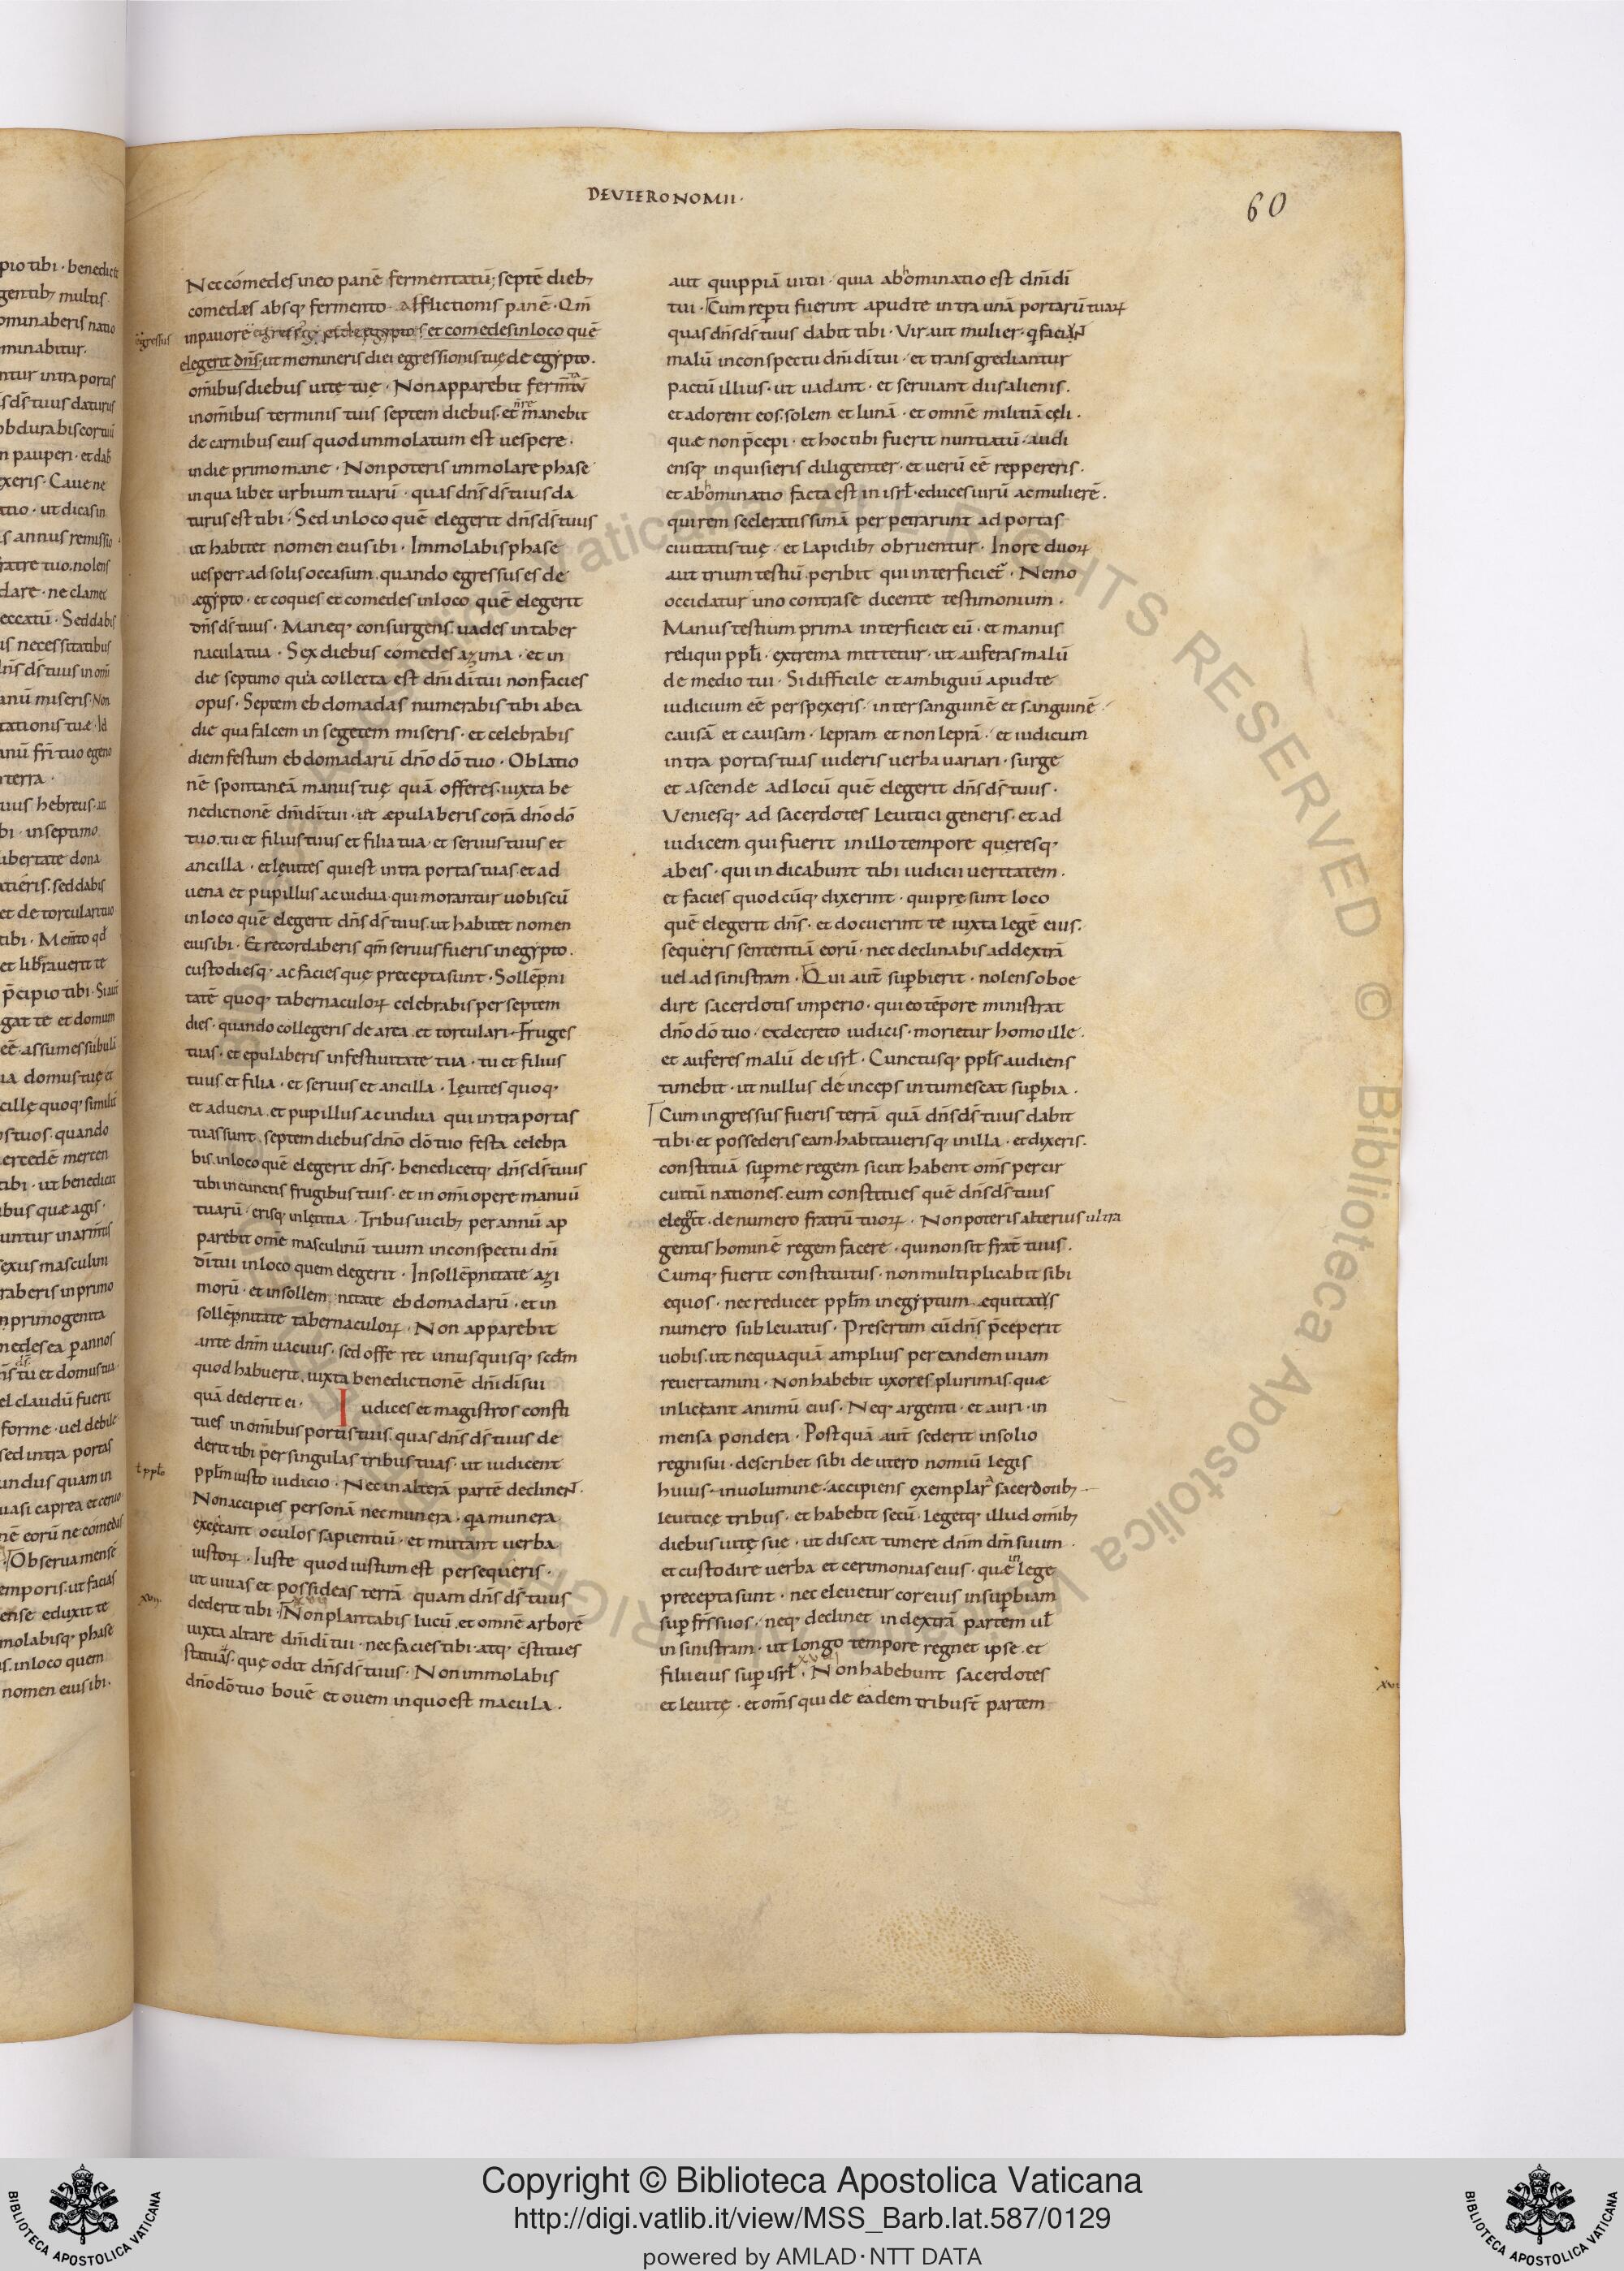 DEVTERONOMII·
60
Nec comedes in eo panē fermentatū; septē dieb;
comedæs absq; fermento· afflictionis panē· Qm̄
in pauore egressus es de egypto; et comedes in loco quē
elegerit dn̄s; ut memineris diei egressionis tuę de egypto·
om̄ibus diebus uitę tuę· Non apparebit ferm̄tū
in om̄ibus terminis tuis septem diebus· et manebit
de carnibus eius quod immolatum est uespere·
in die primo mane· Non poteris immolare phase
in qua libet urbium tuarū· quas dn̄s ds̄ tuus da
turus est tibi· Sed in loco quē elegerit dn̄s ds̄ tuus
ut habitet nomen eius ibi· Immolabis phase
uespere ad solis occasum· quando egressus es de
ægypto· et coques et comedes in loco quē elegerit
dn̄s ds̄ tuus· Maneq; consurgens· uades in taber
nacula tua· Sex diebus comedes azima· et in
die septimo quia collecta est dn̄i dī tui non facies
opus· Septem ebdomadas numerabis tibi ab ea
die qua falcem in segetem miseris· et celebrabis
diem festum ebdomadarū dn̄o dō tuo· Oblatio
nē spontaneā manus tuę quā offeres· iuxta be
nedictionē dn̄i dī tui· et æpulaberis corā dn̄o dō
tuo· tu et filius tuus et filia tua· et seruus tuus et
ancilla· et leuites qui est intra portas tuas· et ad
uena et pupillus ac uidua· qui morantur uobiscū
in loco quē elegerit dn̄s ds̄ tuus· ut habitet nomen
eius ibi· Et recordaberis qm̄ seruus fueris in egypto·
custodiesq; ac facies quę precepta sunt· Sollēpni
tatē quoq; tabernaculoꝝ celebrabis per septem
dies· quando collegeris de area· et torculari· Fruges
tuas· et epulaberis in festiuitate tua· tu et filius
tuus et filia· et seruus et ancilla· Leuites quoq;
et aduena· et pupillus ac uidua qui intra portas
tuas sunt· septem diebus dn̄o dō tuo festa celebra
bis· in loco quē elegerit dn̄s· benedicetq; dn̄s ds̄ tuus
tibi in cunctis frugibus tuis· et in om̄i opere manuū
tuarū· erisq; in lętitia· Tribus uicib; per annū ap
parebit om̄e masculinū tuum in conspectu dn̄i
dī tui in loco quem elegerit· In sollēpnitate azi
morū· et in sollemnitate ebdomadarū· et in
sollēpnitate tabernaculoꝝ· Non apparebit
ante dn̄m uacuus· sed offeret unusquisq; scd̄m
quod habuerit· iuxta benedictionē dn̄i dī sui
quā dederit ei· Iudices et magistros consti
tues in om̄ibus portis tuis· quas dn̄s ds̄ tuus de
derit tibi per singulas tribus tuas· ut iudicent
ppl̄m iusto iudicio· Nec in alterā partē declinent
Non accipies personā nec munera· q̄a munera
exęcant oculos sapientiū· et mutant uerba
iustoꝝ· Iuste quod iustum est persequeris·
ut uiuas et possideas terrā quam dn̄s ds̄ tuus
dederit tibi· Non plantabis lucū· et omnē arborē
iuxta altare dn̄i dī tui· nec facies tibi· atq; cs̄titues
statuas· quę odit dn̄s ds̄ tuus· Non immolabis
dn̄o dō tuo bouē et ouem in quo est macula·
egressus
ł ppl̄o
xvii
aut quippiā uitii· quia abhominatio est dn̄i dī
tui· Cum reperti fuerint apud te intra unā portarū tuaꝝ
quas dn̄s ds̄ tuus dabit tibi· Vir aut mulier· q̄ faciant
malū in conspectu dn̄i dī tui· et transgrediantur
pactū illius· ut uadant· et seruiant diis alienis·
et adorent eos· solem et lunā· et omnē militiā cęli·
quæ non p̄cepi· et hoc tibi fuerit nuntiatū· audi
ensq; inquisieris diligenter· et uerū eē reppereris·
et abhominatio facta est in isrl̄· educes uirū ac mulierē·
qui rem sceleratissimā perpetrarunt ad portas
ciuitatis tuę· et lapidib; obruentur· In ore duoꝝ
aut trium testiū· peribit qui interficietr̄· Nemo
occidatur uno contra se dicente testimonium·
Manus testium prima interficiet eū· et manus
reliqui ppl̄i· extrema mittetur· ut auferas malū
de medio tui· Si difficile et ambiguū apud te
iudicium eē perspexeris· inter sanguinē et sanguinē·
causā et causam· lepram et non leprā· et iudicum
intra portas tuas uideris uerba uariari· surge
et ascende ad locū quē elegerit dn̄s ds̄ tuus·
Veniesq; ad sacerdotes leuitici generis· et ad
iudicem qui fuerit in illo tempore quęresq;
ab eis· qui indicabunt tibi iudicii ueritatem·
et facies quodcūq; dixerint· qui pręsunt loco
quē elegerit dn̄s· et docuerint te iuxta legē eius·
sequeris sententiā eorū· nec declinabis ad dextrā
uel ad sinistram· Qui aut̄ sup̄bierit· nolens oboe
dire sacerdotis imperio· qui eo tēpore ministrat
dn̄o dō tuo· ex decreto iudicis· morietur homo ille·
et auferes malū de isrl̄· Cunctusq; ppl̄s audiens
timebit· ut nullus deinceps intumescat sup̄bia·
Cum ingressus fueris terrā quā dn̄s ds̄ tuus dabit
tibi· et possederis eam· habitauerisq; in illa· et dixeris·
constituā sup̄ me regem sicut habent om̄s per cir
cuitū nationes· eum constitues quē dn̄s ds̄ tuus
elegerit· de numero fratrū tuoꝝ· Non poteris alterius ultra
gentis hominē regem facere· qui non sit frat̄ tuus·
Cumq; fuerit constitutus· non multiplicabit sibi
equos· nec reducet ppl̄m in egyptum· æquitatus
numero subleuatus· Presertim cū dn̄s p̄ceperit
uobis· ut nequaquā amplius per eandem uiam
reuertamini· Non habebit uxores plurimas· quæ
inliceant animū eius· Neq; argenti· et auri· in
mensa pondera· Postquā aut̄ sederit in solio
regni sui· describet sibi deuteronomiū legis
huius· in uolumine· accipiens exemplar a sacerdotib;
leuiticę tribus· et habebit secū· Legetq; illud om̄ib;
diebus uitę suę· ut discat timere dn̄m dm̄ suum·
et custodire uerba et cerimonias eius· quę in lege
precepta sunt· nec eleuetur cor eius in sup̄biam
sup̄ fr̄s suos· neq; declinet in dextrā partem ul̄
in sinistram· ut longo tempore regnet ipse· et
filii eius sup̄ isrl̄· Non habebunt sacerdotes
et leuitę· et om̄s qui de eadem tribu st̄ partem
Copyright © Biblioteca Apostolica Vaticana
http://digi.vatlib.it/view/MSS_Barb.lat.587/0129
powered by AMLAD·NTT DATA
BIBLIOTECA APOSTOLICA VATICANA
BIBLIOTECA APOSTOLICA VATICANA